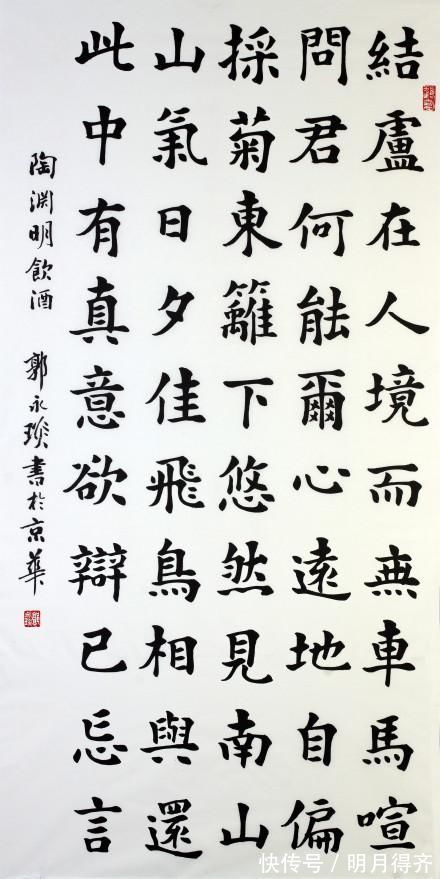 結盧在人境而無車馬喧
問君何能爾心遠地自偏
採菊東籬下悠然見南山
山氣日夕佳飛鳥相與還
此中有真意欲辯已忘言
陶淵明飲酒 郭永琰書於京華
快传号 / 明月得齐